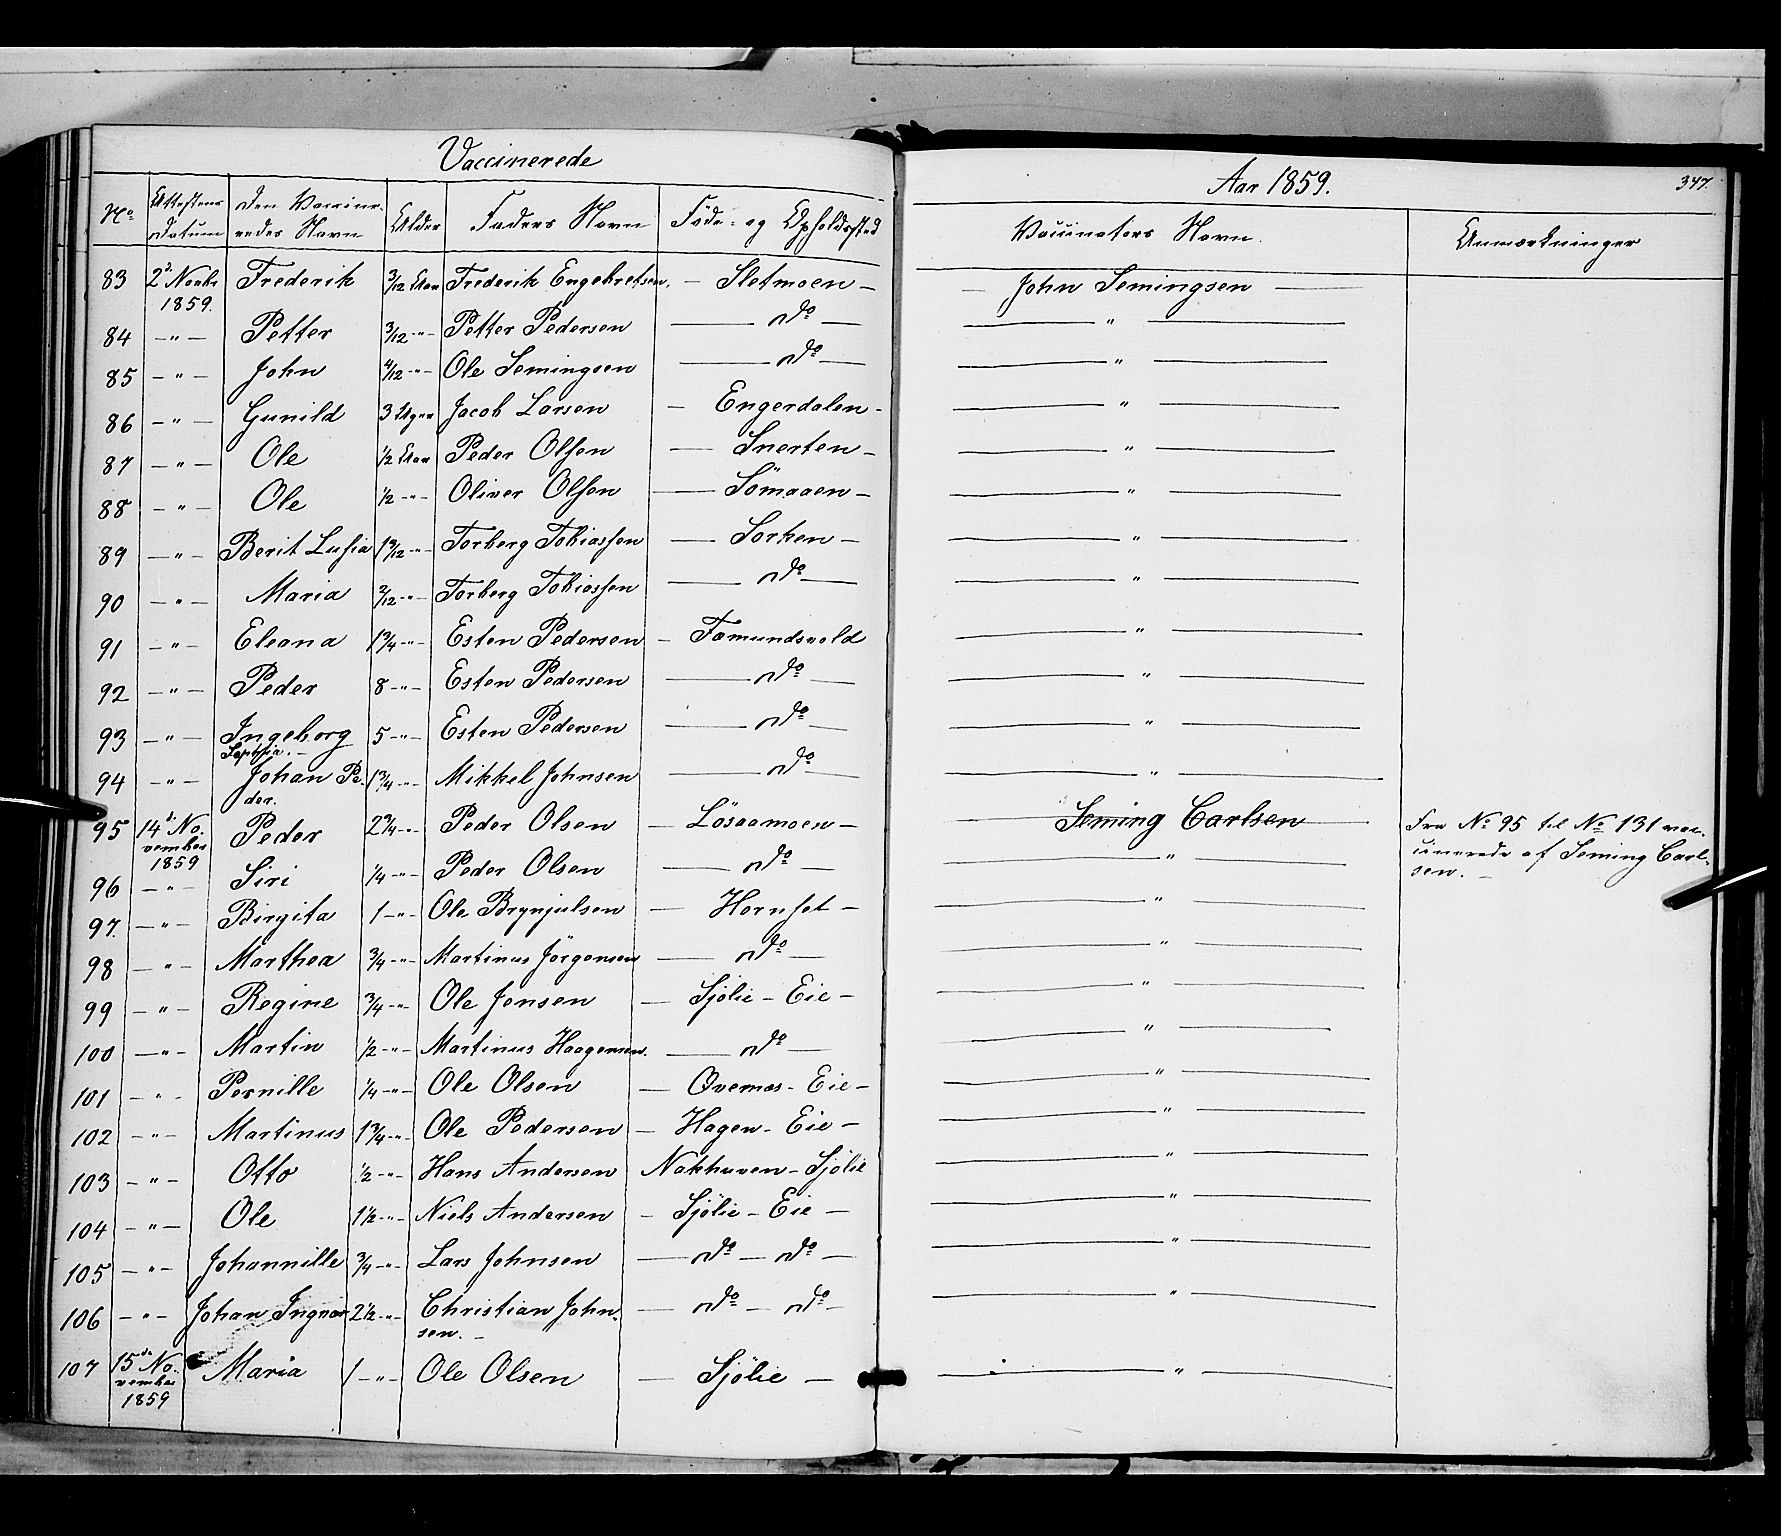 Vaccinerede
Aar 1859.
347.
No Attestens Datum Den Vaccineredes Navn Alder Faders Navn Føde- og Opholdssted Vaccinators Navn. Anmærkninger
83 2d Novbr 1859. Frederik 3/12 Aar Frederik Engebretsen. — Sletmoen — — John Semingsen —
84 — " — Petter 3/12 -"- Petter Pedersen — do — — " —
85 — " — John 4/12 -"- Ole Semingsen — do — — " —
86 — " — Gunild 3 Uger Jacob Larsen — Engerdalen - — " —
87 — " — Ole 1/2 Aar Peder Olsen — Snerten — — " —
88 — " — Ole 1/2 -"- Oliver Olsen — Sömaaen — — " —
89 — " — Berit Lusia -"- Torberg Tobiassen — Sorken — — " —
90 — " — Maria -"- Torberg Tobiassen — do — — " —
91 — " — Eleana 1 3/4 -"- Esten Pedersen — Fæmundsvold — " —
92 — " — Peder 8 -"- Esten Pedersen — do — — " —
93 — " — Ingeborg Sophia. — 5 -"- Esten Pedersen — do — — " —
94 — " — Johan Peder. 1 3/4 -"- Mikkel Johnsen — do — — " —
95 14d November 1859 Peder 2 3/4 -"- Peder Olsen — Lösaamoen — — Seming Carlsen — Fra No 95 til No 131 vac-
cinerede af Seming Carl-
sen. —
96 — " — Siri 1/4 -"- Peder Olsen — do — — " —
97. — " — Birgita 1 -"- Ole Brynjulsen — Hornset — — " —
98 — " — Marthea 3/4 -"- Martinus Jörgensen — do — — " —
99 — " — Regine 3/4 -"- Ole Jensen — Sjölie - Eie — — " —
100 — " — Martin 1/2 -"- Martinus Haagensen. — do — — " —
101 - " - Pernille 1/4 -"- Ole Olsen — Qvernæs - Eie — — " —
102 — " — Martinus 1 3/4 -"- Ole Pedersen — Hagen - Eie — — " —
103 — " — Otto 1/2 -"- Hans Andersen Nakhuven - Sjölie — " —
104 — " — Ole 1 1/2 -"- Niels Andersen — Sjölie - Eie — — " —
105 — " — Johannille 3/4 -"- Lars Johnsen — do — do — — " —
106 — " — Johan Ingvar 2 1/2 -"- Christian John-
sen. — — do — do — — " —
107 15de November 1859 Maria 1 -"- Ole Olsen — Sjölie — — " —